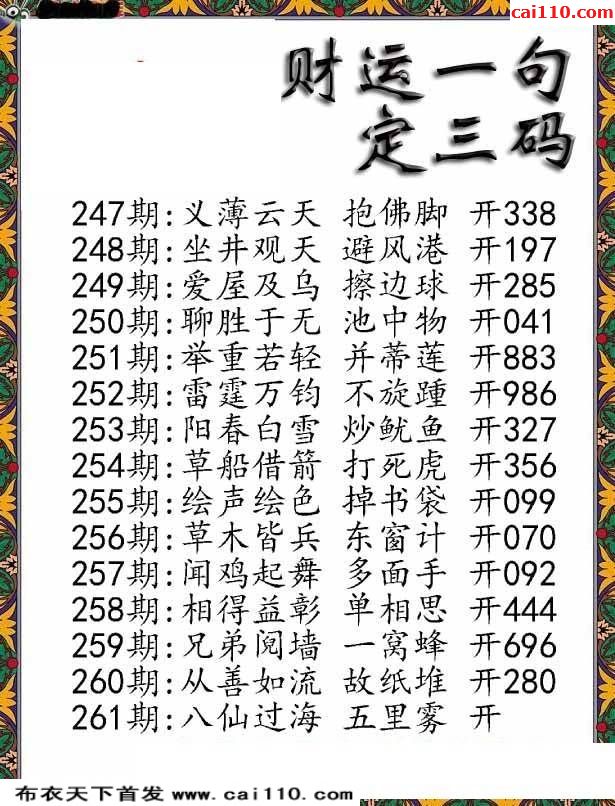 cai110.com
财运一句
定三码
247期:义薄云天 抱佛脚 开338
248期:坐井观天 避风港 开197
249期:爱屋及乌 擦边球 开285
250期:聊胜于无 池中物 开041
251期:举重若轻 并蒂莲 开883
252期:雷霆万钧 不旋踵 开986
253期:阳春白雪 炒鱿鱼 开327
254期:草船借箭 打死虎 开356
255期:绘声绘色 掉书袋 开099
256期:草木皆兵 东窗计 开070
257期:闻鸡起舞 多面手 开092
258期:相得益彰 单相思 开444
259期:兄弟阋墙 一窝蜂 开696
260期:从善如流 故纸堆 开280
261期:八仙过海 五里雾 开
布衣天下首发 www.cai110.com